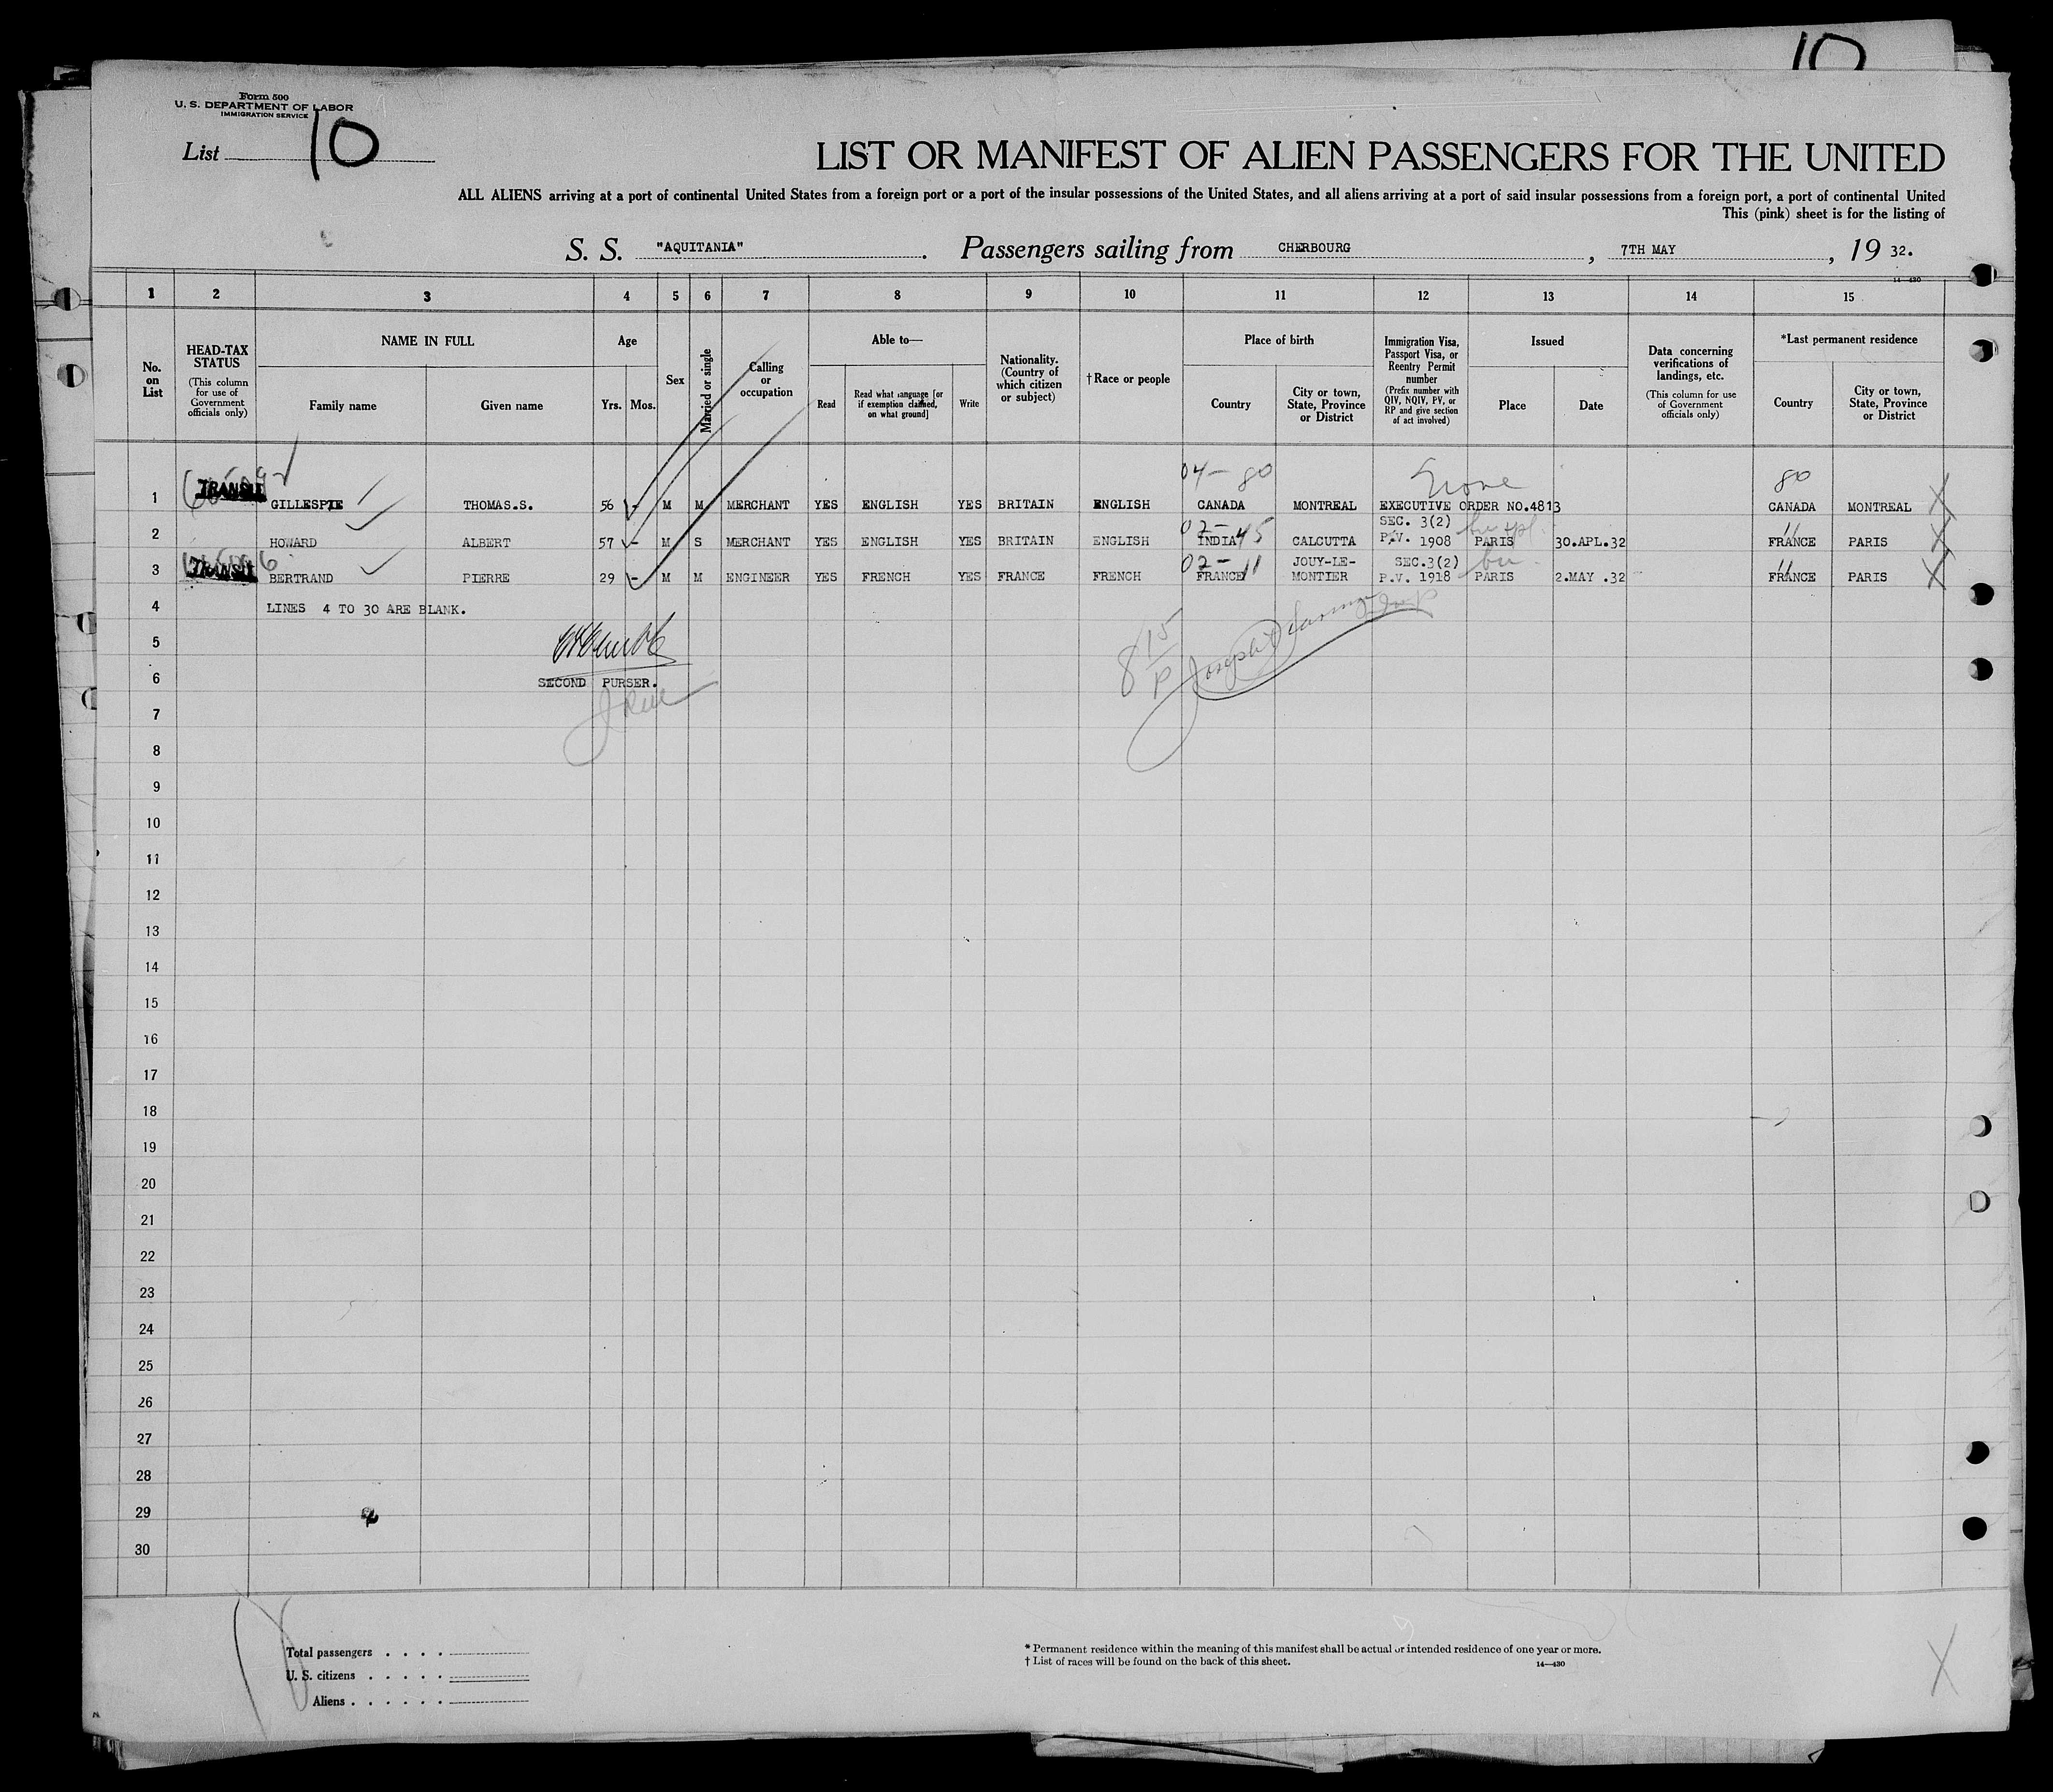 10
Form 500
U. S. DEPARTMENT OF LABOR
IMMIGRATION SERVICE
List 10
LIST OR MANIFEST OF ALIEN PASSENGERS FOR THE UNITED
ALL ALIENS arriving at a port of continental United States from a foreign port or a port of the insular possessions of the United States, and all aliens arriving at a port of said insular possessions from a foreign port, a port of continental United
This (pink) sheet is for the listing of
S. S. "AQUITANIA". Passengers sailing from CHERBOURG, 7TH MAY, 19 32.
14-430
1 2 3 4 5 6 7 8 9 10 11 12 13 14 15
No. on List
HEAD-TAX STATUS (This column for use of Government officials only)
NAME IN FULL
Family name
Given name
Age
Yrs. Mos.
Sex
Married or single
Calling or occupation
Able to—
Read
Read what language [or if exemption claimed, on what ground]
Write
Nationality. (Country of which citizen or subject)
†Race or people
Place of birth
Country
City or town, State, Province or District
Immigration Visa, Passport Visa, or Reentry Permit number (Prefix number with QIV, NQIV, PV, or RP and give section of act involved)
Issued
Place
Date
Data concerning verifications of landings, etc. (This column for use of Government officials only)
*Last permanent residence
Country
City or town, State, Province or District
04- 80 None 80
1 TRANSIT GILLESPIE THOMAS.S. 56 - M M MERCHANT YES ENGLISH YES BRITAIN ENGLISH CANADA MONTREAL EXECUTIVE ORDER NO.4813 CANADA MONTREAL X
02- 45 SEC. 3(2) 11
2 HOWARD ALBERT 57 - M S MERCHANT YES ENGLISH YES BRITAIN ENGLISH INDIA CALCUTTA P.V. 1908 PARIS 30.APL.32 FRANCE PARIS X
02- 11 JOUY-LE- SEC.3(2) 11
3 TRANSIT BERTRAND PIERRE 29 - M M ENGINEER YES FRENCH YES FRANCE FRENCH FRANCE MONTIER P.V. 1918 PARIS 2.MAY .32 FRANCE PARIS X
4 LINES 4 TO 30 ARE BLANK.
5
6 SECOND PURSER.
8 15 P
7
8
9
10
11
12
13
14
15
16
17
18
19
20
21
22
23
24
25
26
27
28
29
30
Total passengers . . . .
U. S. citizens . . . . .
Aliens . . . . . .
* Permanent residence within the meaning of this manifest shall be actual or intended residence of one year or more.
† List of races will be found on the back of this sheet.
14—430
X